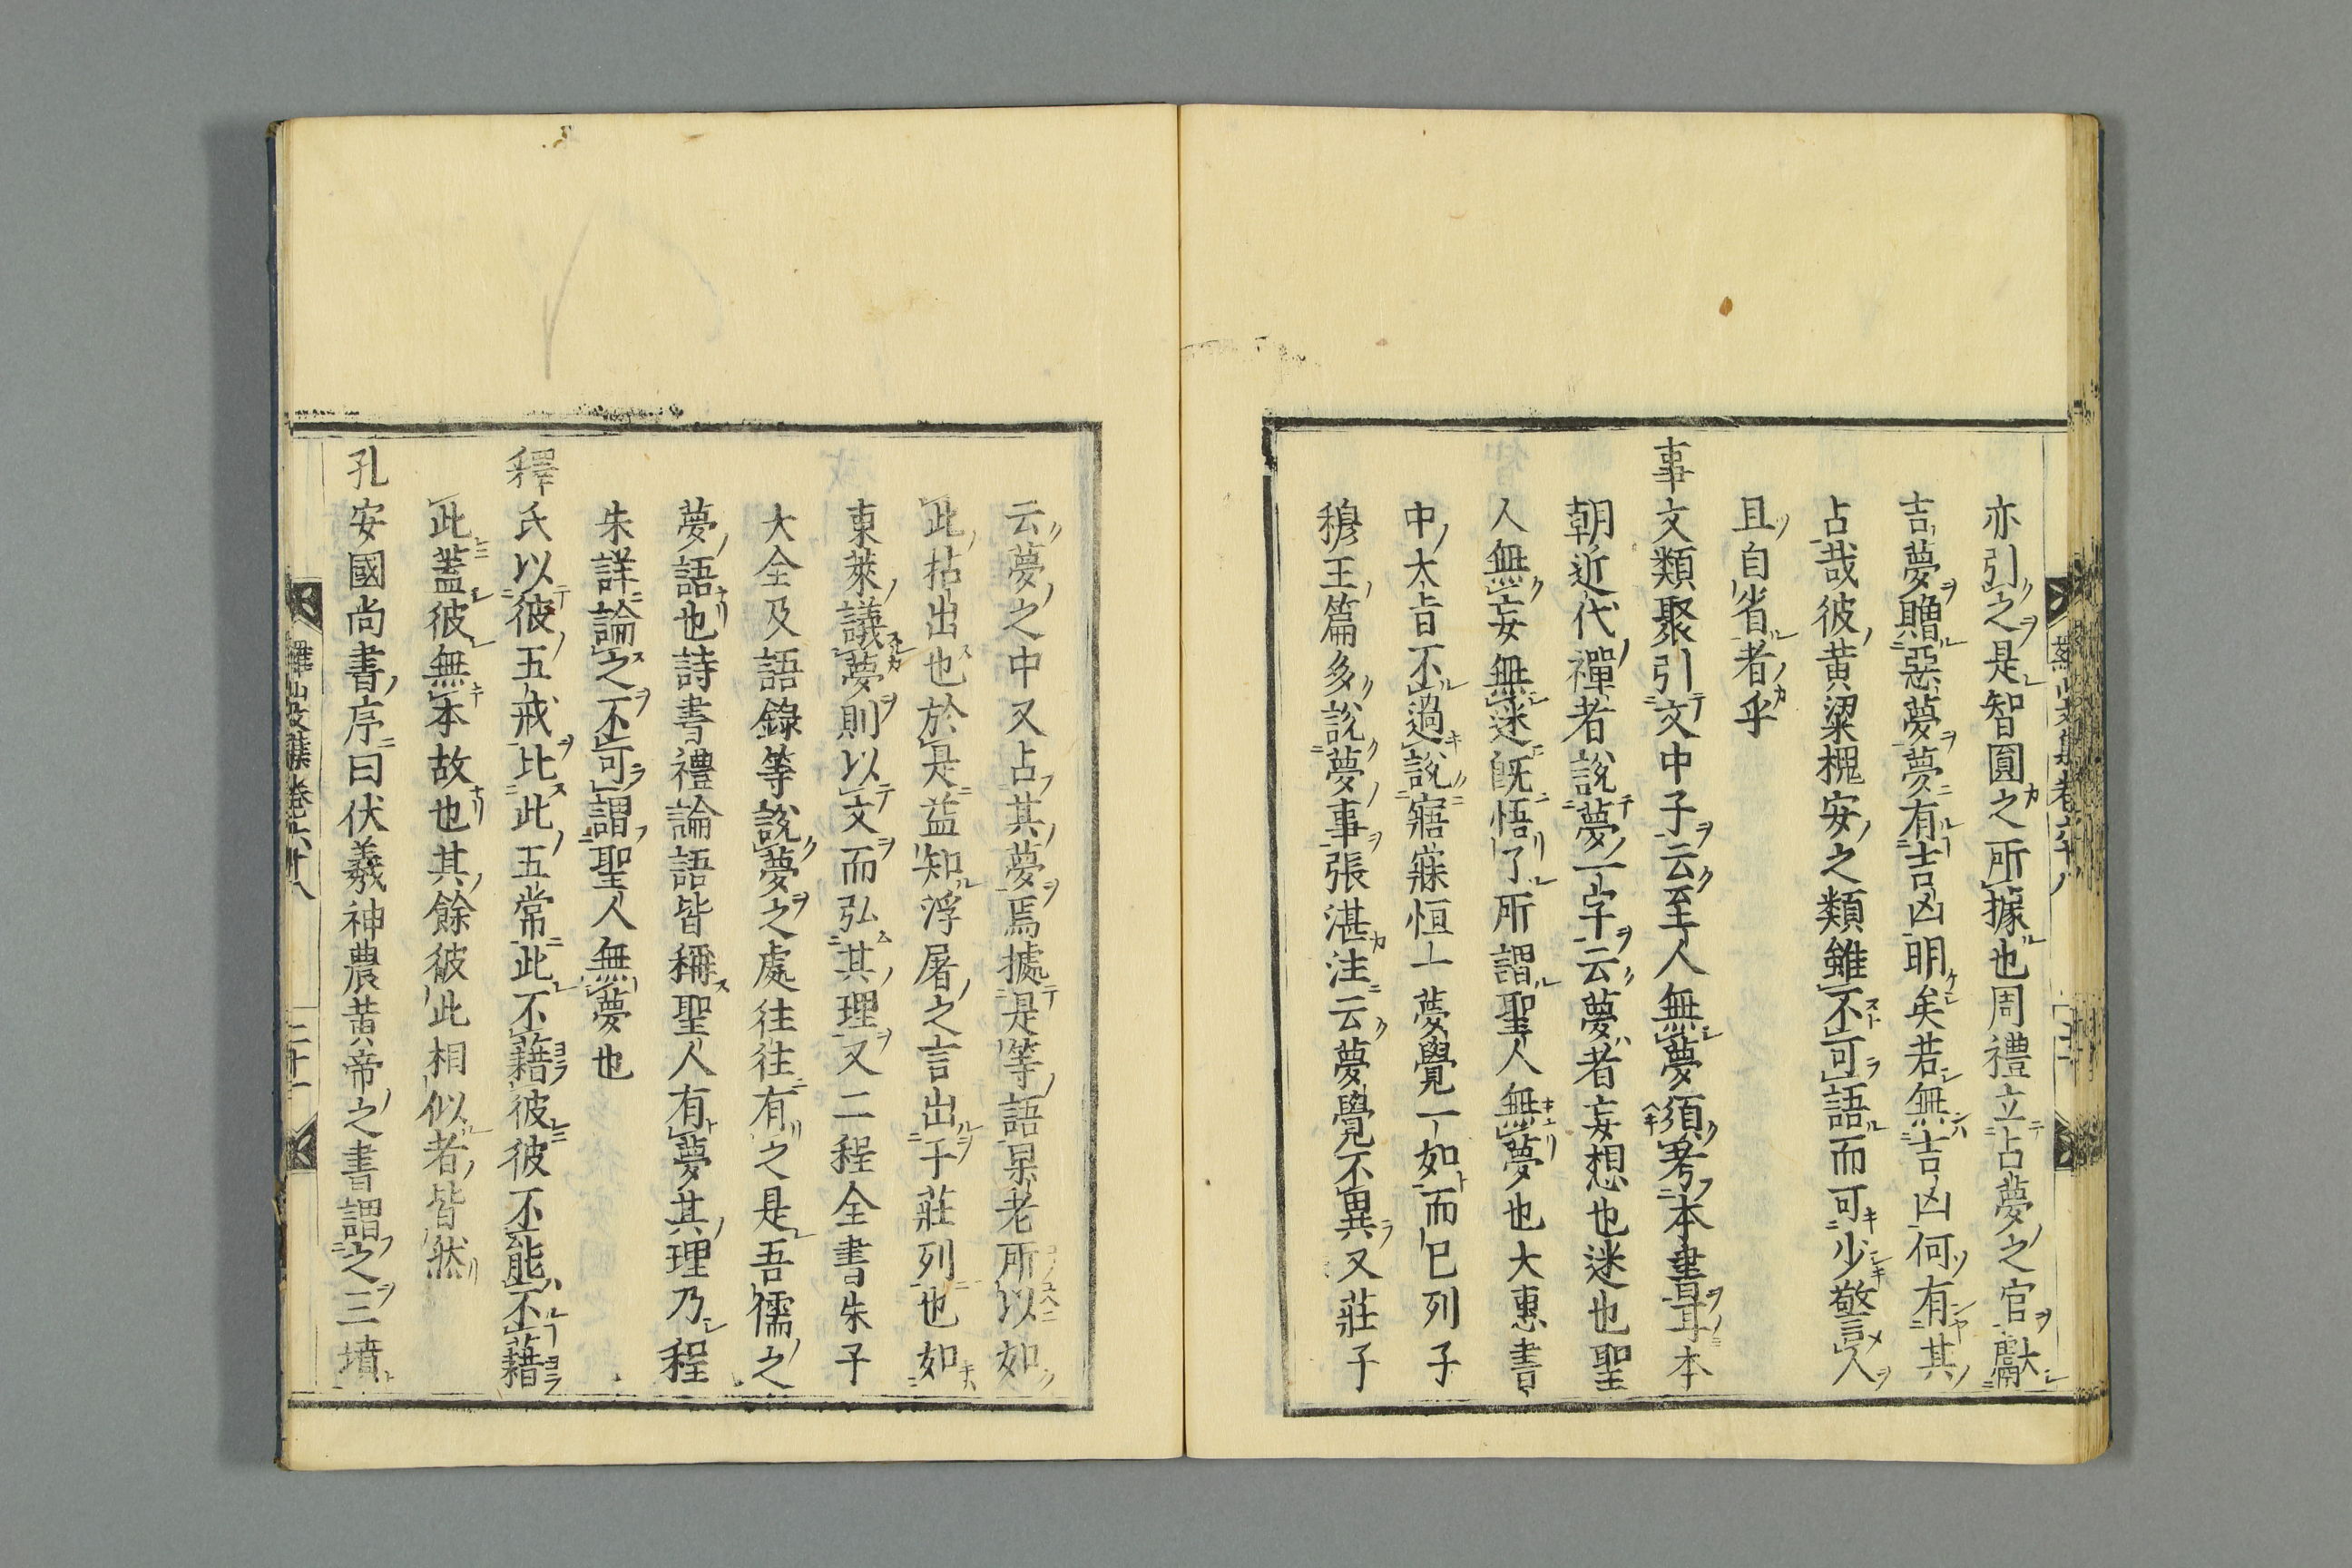 亦引之是智圓之所據也周禮立占夢之官獻
吉夢贈惡夢夢有吉凶明矣若無吉凶何有其
占哉彼黃粱槐安之類雖不可語而可少警言人
且自省者乎
事文類聚引文中子云至人無夢須考本書耳本
朝近代禪者說夢一字云夢者妄想也迷也聖
人無妄無迷既悟了所謂聖人無夢也大惠書
中大旨不過說寤寐恒一夢覺一如而已列子
穆王篇多說夢事張湛注云夢覺不異又莊子
云夢之中又占其夢焉據是等語杲老所以如
此拈出也於是益知浮屠之言出于莊列也如
東萊議夢則以文而弘其理又二程全書朱子
大全及語錄等說夢之處往往有之是吾儒之
夢語也詩書禮論語皆稱聖人有夢其理乃程
朱詳論之不可謂聖人無夢也
釋氏以彼五戒比此五常此不藉彼彼不能不藉
此蓋彼無本故也其餘彼此相似者皆然
孔安國尚書序曰伏羲神農黃帝之書謂之三墳
羅山文集卷六十八
二十一